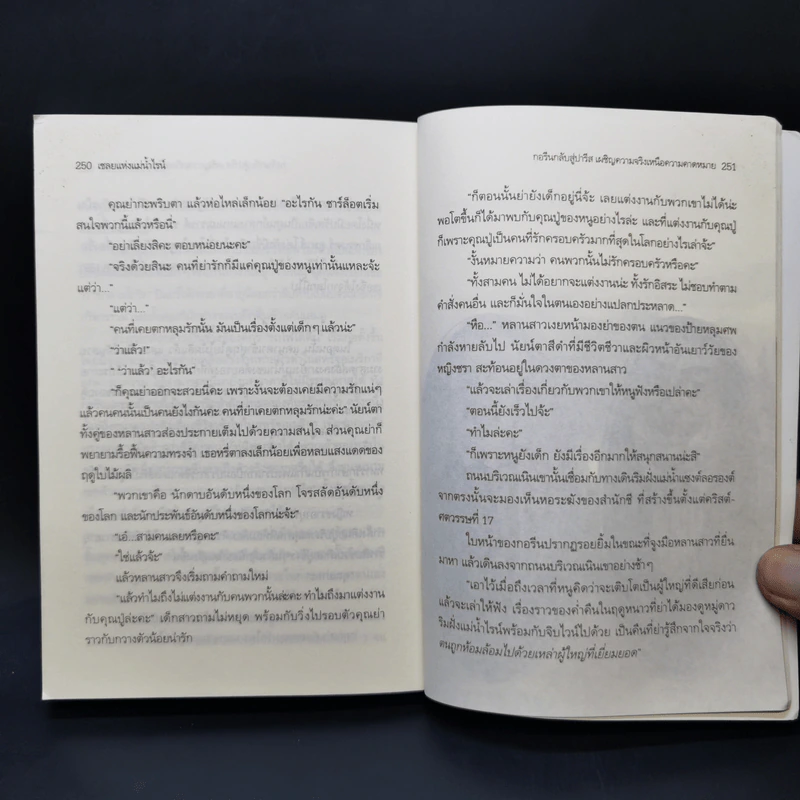 250 เชลยแห่งแม่น้ำไรน์
คุณย่ากะพริบตา แล้วห่อไหล่เล็กน้อย "อะไรกัน ชาร์ล็อตเริ่ม
สนใจพวกนี้แล้วหรือนี่"
"อย่าเลี่ยงสิคะ ตอบหน่อยนะคะ"
"จริงด้วยสินะ คนที่ย่ารักก็มีแค่คุณปู่ของหนูเท่านั้นแหละจ้ะ
แต่ว่า..."
"แต่ว่า..."
"คนที่เคยตกหลุมรักนั้น มันเป็นเรื่องตั้งแต่เด็กๆ แล้วน่ะ"
"ว่าแล้ว!"
" 'ว่าแล้ว' อะไรกัน"
"ก็คุณย่าออกจะสวยนี่คะ เพราะงั้นจะต้องเคยมีความรักแน่ๆ
แล้วคนคนนั้นเป็นคนยังไงกันคะ คนที่ย่าเคยตกหลุมรักน่ะค่ะ" นัยน์ตา
ทั้งคู่ของหลานสาวส่องประกายเต็มไปด้วยความสนใจ ส่วนคุณย่าก็
พยายามรื้อฟื้นความทรงจำ เธอหรี่ตาลงเล็กน้อยเพื่อหลบแสงแดดของ
ฤดูใบไม้ผลิ
"พวกเขาคือ นักดาบอันดับหนึ่งของโลก โจรสลัดอันดับหนึ่ง
ของโลก และนักประพันธ์อันดับหนึ่งของโลกน่ะจ้ะ"
"เอ๋...สามคนเลยหรือคะ"
"ใช่แล้วจ้ะ"
แล้วหลานสาวจึงเริ่มถามคำถามใหม่
"แล้วทำไมถึงไม่แต่งงานกับคนพวกนั้นล่ะคะ ทำไมถึงมาแต่งงาน
กับคุณปู่ล่ะคะ" เด็กสาวถามไม่หยุด พร้อมกับวิ่งไปรอบตัวคุณย่า
ราวกับกวางตัวน้อยน่ารัก
กอรีนกลับสู่ปารีส เผชิญความจริงเหนือความคาดหมาย 251
"ก็ตอนนั้นย่ายังเด็กอยู่นี่จ้ะ เลยแต่งงานกับพวกเขาไม่ได้น่ะ
พอโตขึ้นก็ได้มาพบกับคุณปู่ของหนูอย่างไรล่ะ และที่แต่งงานกับคุณปู่
ก็เพราะคุณปู่เป็นคนที่รักครอบครัวมากที่สุดในโลกอย่างไรเล่าจ้ะ"
"งั้นหมายความว่า คนพวกนั้นไม่รักครอบครัวหรือคะ"
"ทั้งสามคน ไม่ได้อยากจะแต่งงานน่ะ ทั้งรักอิสระ ไม่ชอบทำตาม
คำสั่งคนอื่น และก็มั่นใจในตนเองอย่างแปลกประหลาด..."
"หือ..." หลานสาวเงยหน้ามองย่าของตน แนวของป้ายหลุมศพ
กำลังหายลับไป นัยน์ตาสีดำที่มีชีวิตชีวาและผิวหน้าอันเยาว์วัยของ
หญิงชรา สะท้อนอยู่ในดวงตาของหลานสาว
"แล้วจะเล่าเรื่องเกี่ยวกับพวกเขาให้หนูฟังหรือเปล่าคะ"
"ตอนนี้ยังเร็วไปจ้ะ"
"ทำไมล่ะคะ"
"ก็เพราะหนูยังเด็ก ยังมีเรื่องอีกมากให้สนุกสนานน่ะสิ"
ถนนบริเวณเนินเขานั้นเชื่อมกับทางเดินริมฝั่งแม่น้ำแซงต์ลอรองต์
จากตรงนั้นจะมองเห็นหอระฆังของสำนักชี ที่สร้างขึ้นตั้งแต่คริสต์-
ศตวรรษที่ 17
ใบหน้าของกอรีนปรากฏรอยยิ้มในขณะที่จูงมือหลานสาวที่ยื่น
มาหา แล้วเดินลงจากถนนบริเวณเนินเขาอย่างช้าๆ
"เอาไว้เมื่อถึงเวลาที่หนูคิดว่าจะเติบโตเป็นผู้ใหญ่ที่ดีเสียก่อน
แล้วจะเล่าให้ฟัง เรื่องราวของค่ำคืนในฤดูหนาวที่ย่าได้มองดูหมู่ดาว
ริมฝั่งแม่น้ำไรน์พร้อมกับจิบไวน์ไปด้วย เป็นคืนที่ย่ารู้สึกจากใจจริงว่า
ตนถูกห้อมล้อมไปด้วยเหล่าผู้ใหญ่ที่เยี่ยมยอด"